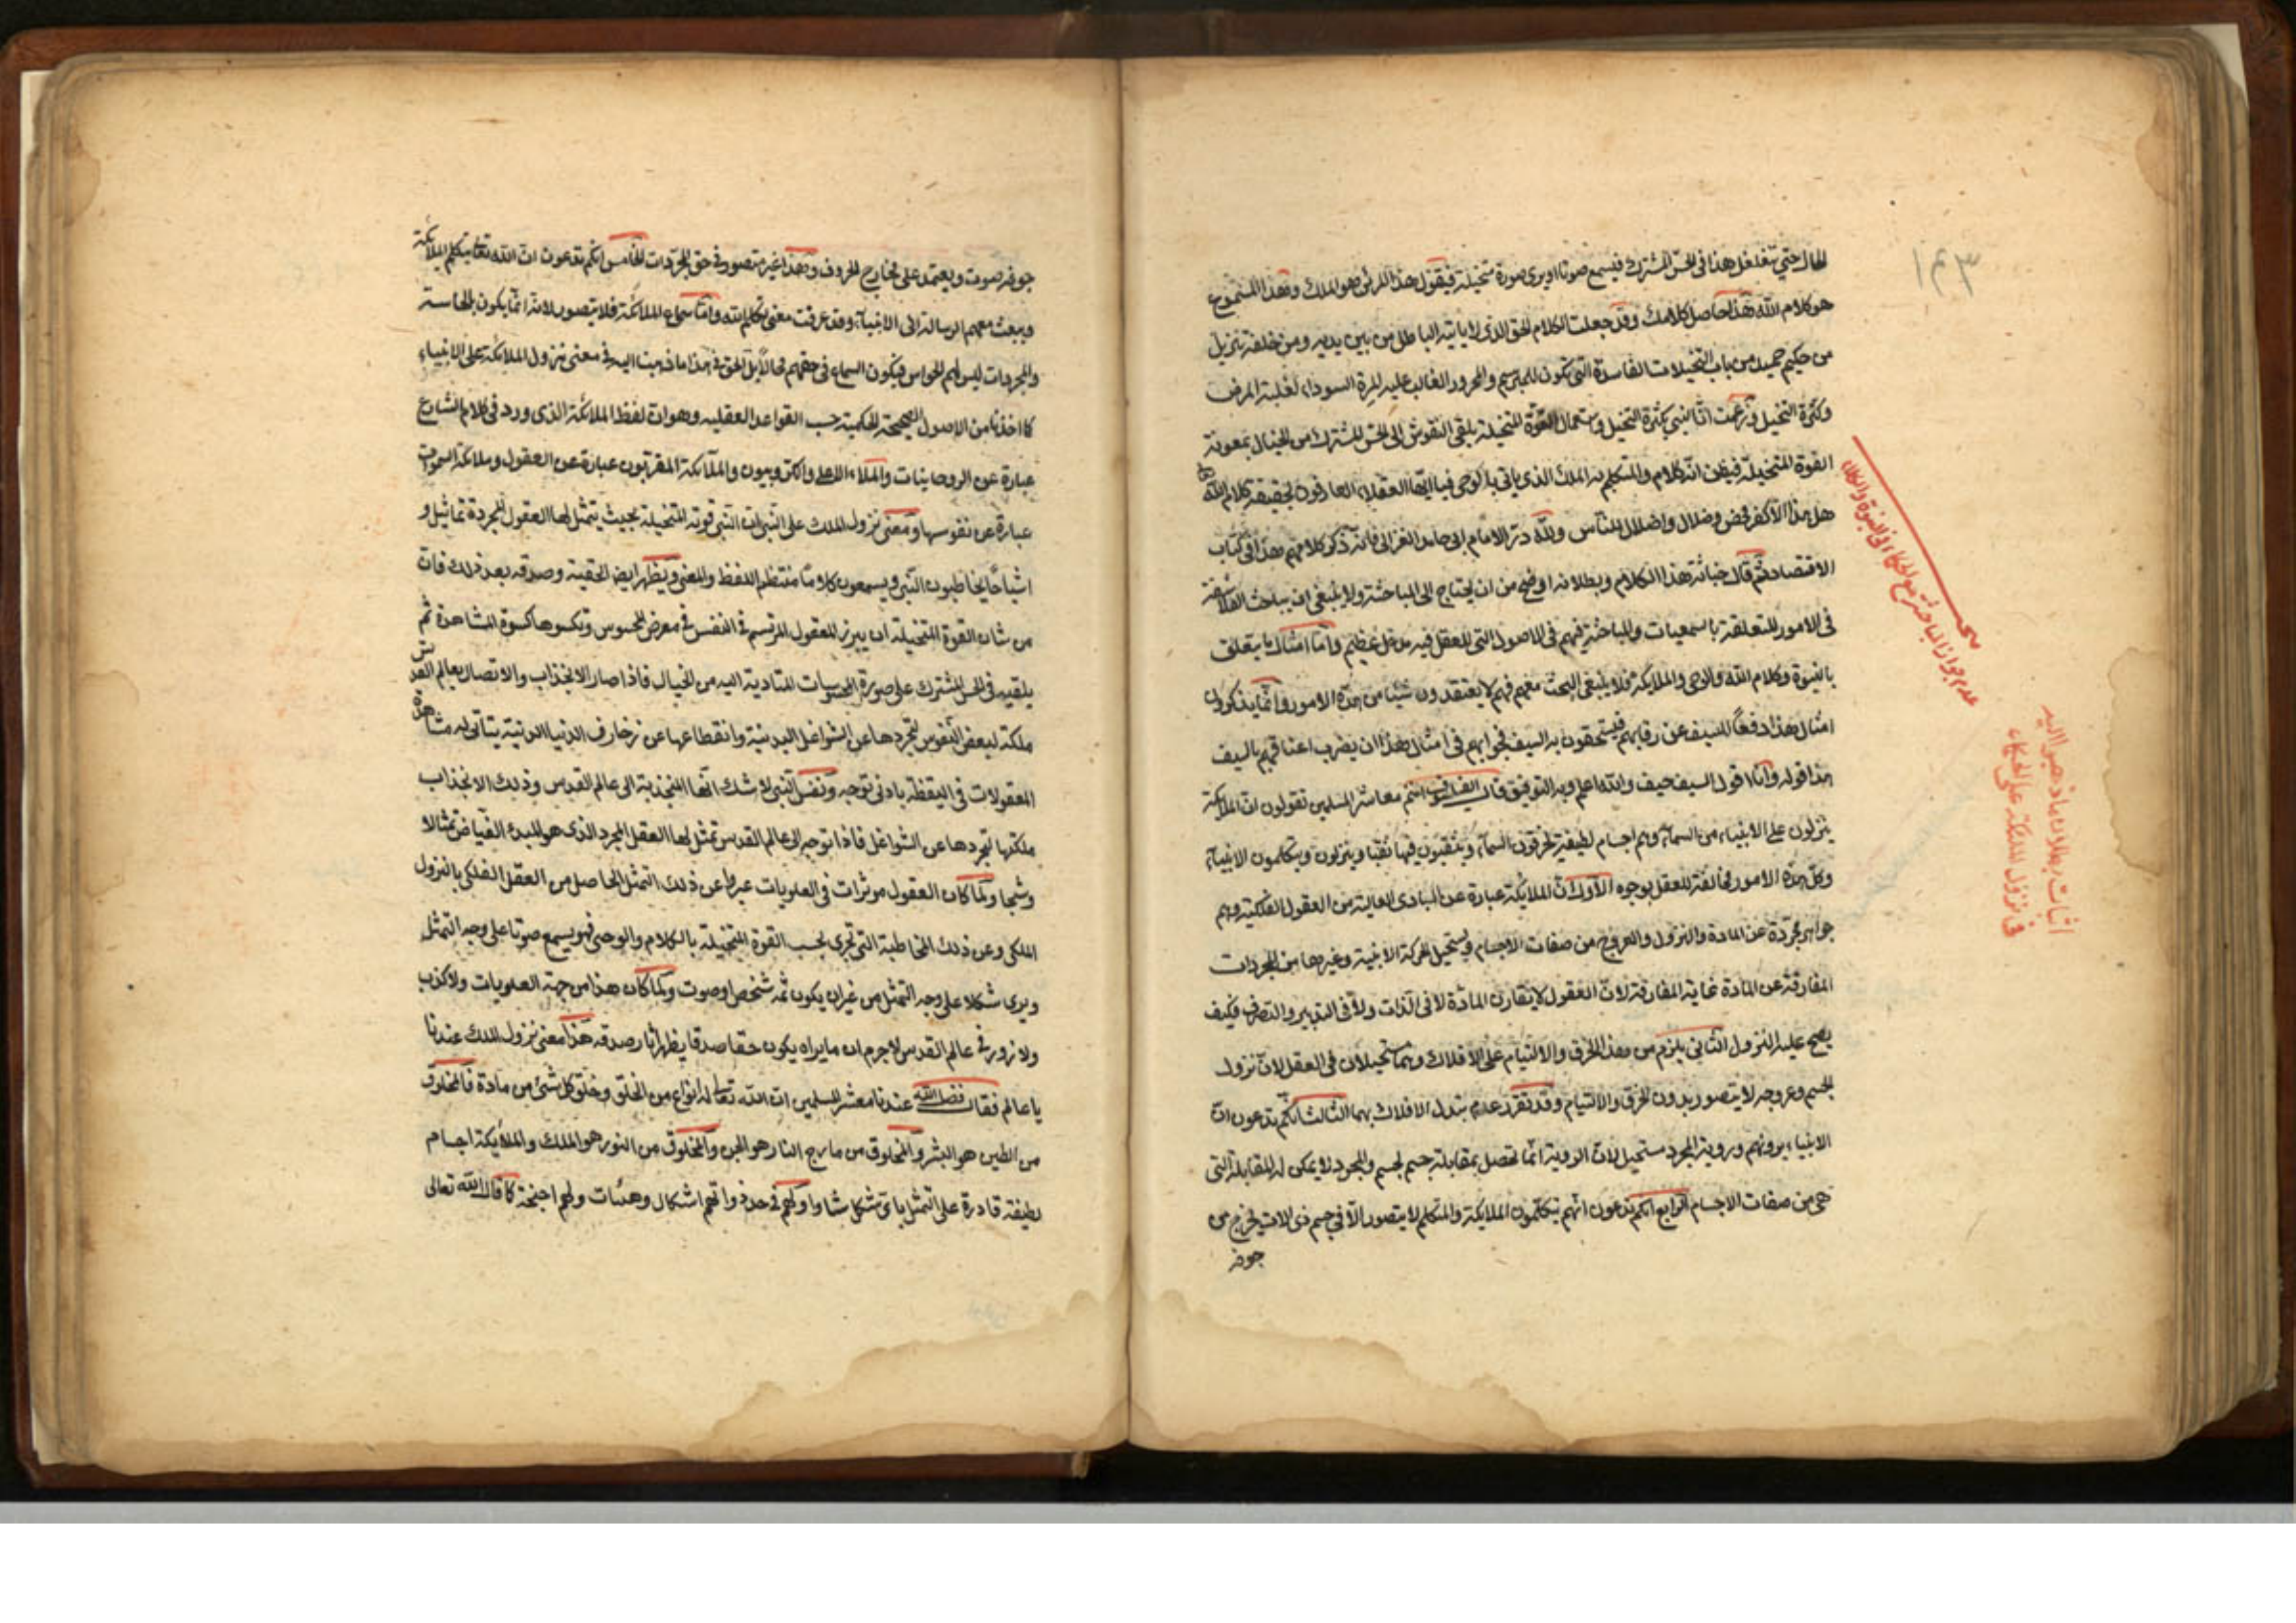 ١٤٣
الحال حتي يتغلغل هذا فى الحس المشترك فيسمع صوتا او يرى صورة متخيلة فيقول هذا المرئى هو الملك وهذا المسموع
هو كلام الله هذا حاصل كلامك وقد جعلت الكلام الحق الذى لا ياتيه الباطل من بين يديه ومن خلفه تنزيل
من حكيم حميد من باب التخيلات الفاسدة التى تكون للمبرسم والمحرور الغالب عليه المرة السوداء لغلبة المرض
وكثرة التخيل وزعمت ان النبى بكثرة التخيل واستعمال القوة المتخيلة يلقى النقوش الى الحس المشترك من الخيال بمعونة
القوة المتخيلة فيظن انه كلام والمتكلم به الملك الذى ياتى بالوحى فيا ايها العقلاء العارفون بحقيقة كلام الله
هل هذا الا كفر محض وضلال واضلال للناس ولله در الامام ابى حامد الغزالى فانه ذكر كلامهم هذا فى كتاب
الاقتصاد ثم قال خباثة هذا الكلام وبطلانه اوضح من ان يحتاج الى المباحثة ولا ينبغى ان يباحث الفلاسفة
فى الامور المتعلقة بالسمعيات والمباحثة فيهم فى الاصول التى للعقل فيه مدخل عظيم واما امثال ما يتعلق
بالنبوة وكلام الله والوحى والملايكة فلا ينبغى البحث معهم فهم لا يعتقدون شيئا من هذه الامور وانما يذكرون
امثال هذا دفعا للسيف عن رقابهم فيستحقون به السيف فجوابهم فى امثال هذا ان يضرب اعناقهم بالسيف
هذا قوله وانا اقول السيف حيف والله اعلم وبه التوفيق قال الفيلسوف انتم معاشر المسلمين تقولون ان الملايكة
ينزلون على الانبياء من السماء وهم اجسام لطيفة يخرقون السماء وينقبون فيها نقبا وينزلون ويتكلمون الانبياء
وكل هذه الامور مخالفة للعقل بوجوه الاول ان الملايكة عبارة عن المبادى العالية من العقول الفلكية وهم
جواهر مجردة عن المادة والنزول والعروج من صفات الاجسام ويستحيل الحركة الاينية وغيرها من المجردات
المفارقة عن المادة غاية المفارقة لان العقول لا يقارن المادة لا فى الذات ولا فى التدبير والتصرف فكيف
يصح عليه النزول الثانى يلزم من هذا الخرق والالتيام على الافلاك وهما مستحيلان فى العقل لان نزول
الجسم وعروجه لا يتصور بدون الخرق والالتيام وقد تقرر عدم تبدل الافلاك بهما الثالث انكم تدعون ان
الانبياء يرونهم وروية المجرد مستحيل لان الروية انما تحصل بمقابلة جسم لجسم والمجرد لا يمكن له المقابلة التى
هى من صفات الاجسام الرابع انكم تدعون انهم يتكلمون الملايكة والمتكلم لا يتصور الا فى جسم ذى الات يخرج من
جوفه
عدم جواز المباحثة مع الحكماء فى النبوة والكلام
اثبات بطلان ما ذهبوا اليه
فى نزول الملئكة على الحكماء
جوفه صوت ويعتمد على مخارج الحروف وهذا غير متصور فى حق المجردات الخامس انكم تدعون ان الله تعالى يتكلم الملائكة
ويبعث معهم الرسالة الى الانبياء وقد عرفت معنى تكلم الله واما سماع الملائكة فلا يتصور لانه انما يكون بالحاسة
والمجردات ليس لهم الحواس فيكون السماع فى حقهم محالا بل الحق فى هذا ما ذهبنا اليه فى معنى نزول الملايكة على الانبياء
كما اخذنا من الاصول الصحيحة الحكمية حسب القواعد العقليه وهو ان لفظ الملائكة الذى ورد فى كلام الشارع
عبارة عن الروحانيات والملاء الاعلى والكروبيون والملائكة المقربون عبارة عن العقول وملائكة السموات
عبارة عن نفوسها ومعنى نزول الملك على النبى ان النبى قوته المتخيلة بحيث يتمثل لها العقول المجردة تماثيل و
اشباحا يخاطبون النبى ويسمعون كلاما منتظم اللفظ والمعنى ويظهر ايض الحقية وصدقه بعد ذلك فان
من شان القوة المتخيلة ان يبرز المعقول المرتسم فى النفس فى معرض المحسوس وتكسوها كسوة المشاهدة ثم
يلقيه فى الحس المشترك على صورة المحسوسات المتادية اليه من الخيال فاذا صار الانجذاب والاتصال بعالم القدس
ملكة لبعض النفوس لتجردها عن الشواغل البدنية وانقطاعها عن زخارف الدنيا الدنية يتاتى له مشاهدة
المعقولات فى اليقظة بادنى توجه ونفس النبى لا شك انها المنجذبة الى عالم القدس وذلك الانجذاب
ملكتها لتجردها عن الشواغل فاذا توجه الى عالم القدس تمثل لها العقل المجرد الذى هو المبدء الفياض تمثالا
وشبحا ولما كان العقول موثرات فى العلويات عبر عن ذلك التمثل الحاصل من العقل الفلكى بالنزول
الملكى وعن ذلك المخاطبة التى تجرى بحسب القوة المتخيلة بالكلام والوحى فهو يسمع صوتا على وجه التمثل
ويرى شكلا على وجه التمثل من غير ان يكون ثمه شخص او صوت ولما كان هذا من جهة العلويات ولا كذب
ولا زور فى عالم القدس لاجرم ان ما يراه يكون حقا صدقا يظهر اثار صدقه هذا معنى نزول الملك عندنا
يا عالم فقال فضل الله عندنا معشر المسلمين ان الله تعالى له انواع من الخلق وخلق كل شئ من مادة فالمخلوق
من الطين هو البشر والمخلوق من مارج النار هو الجن والمخلوق من النور هو الملك والملايكة اجسام
لطيفة قادرة على التمثل باى شكل شاوا ولهم فى حد ذواتهم اشكال وهيئات ولهم اجنحة كما قال الله تعالى